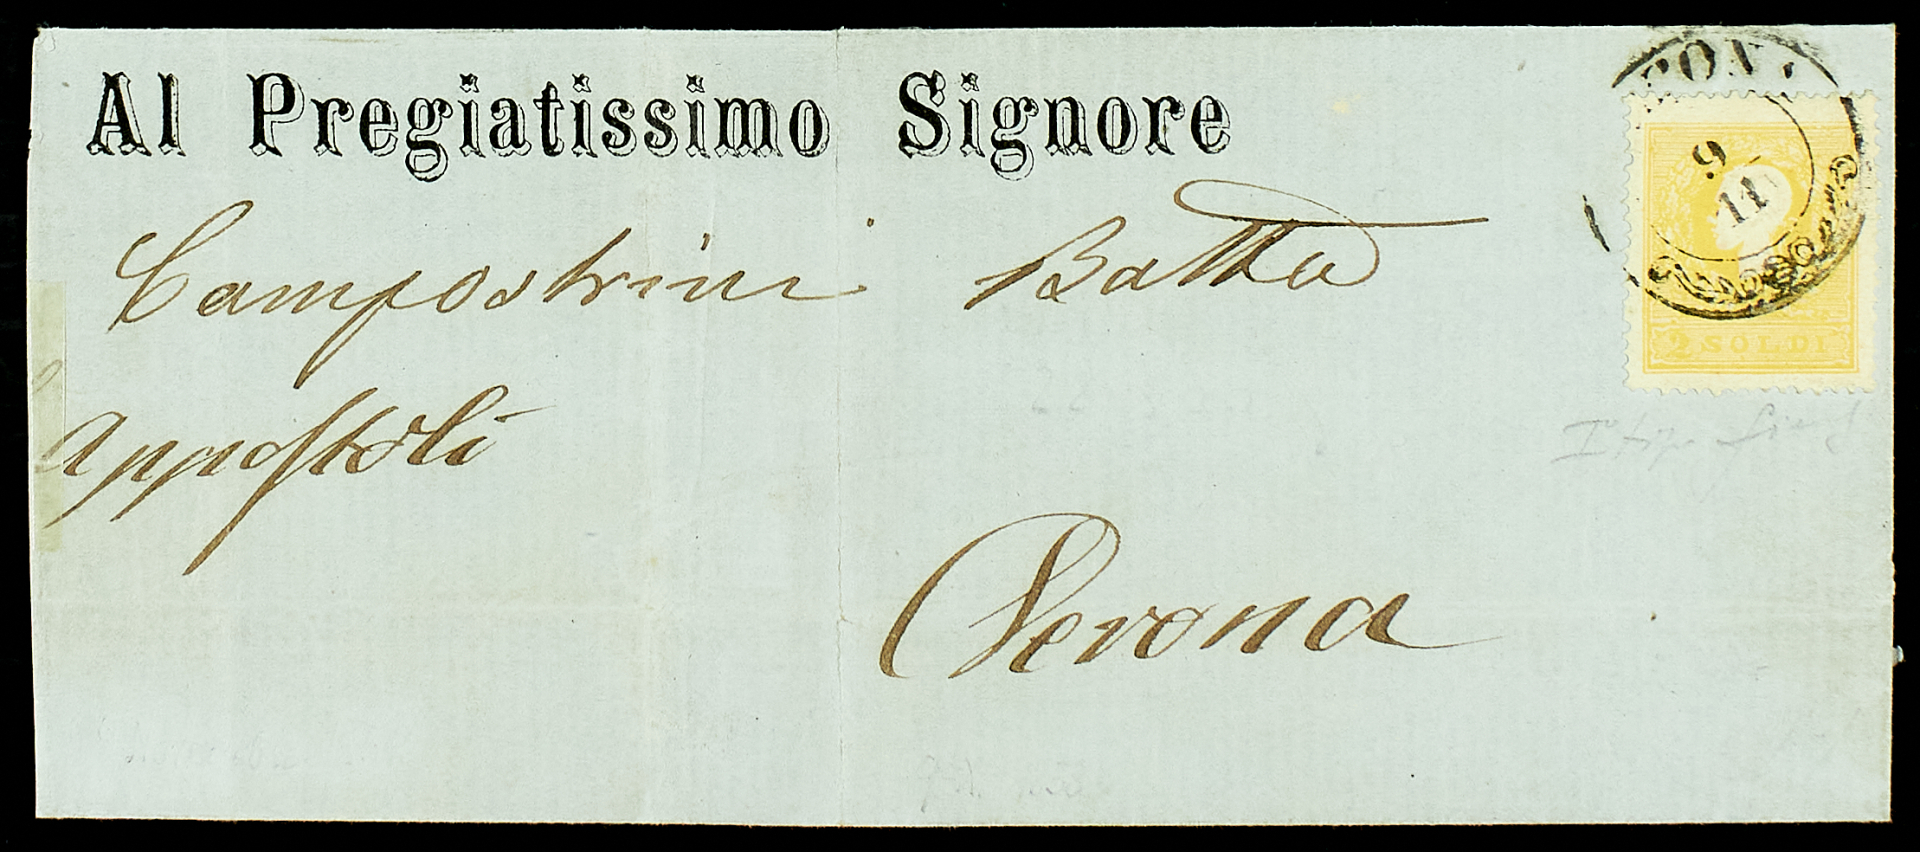 Al Pregiatissimo Signore
Campostrini Batta
Appostoli
Verona
9
11
2 SOLDI